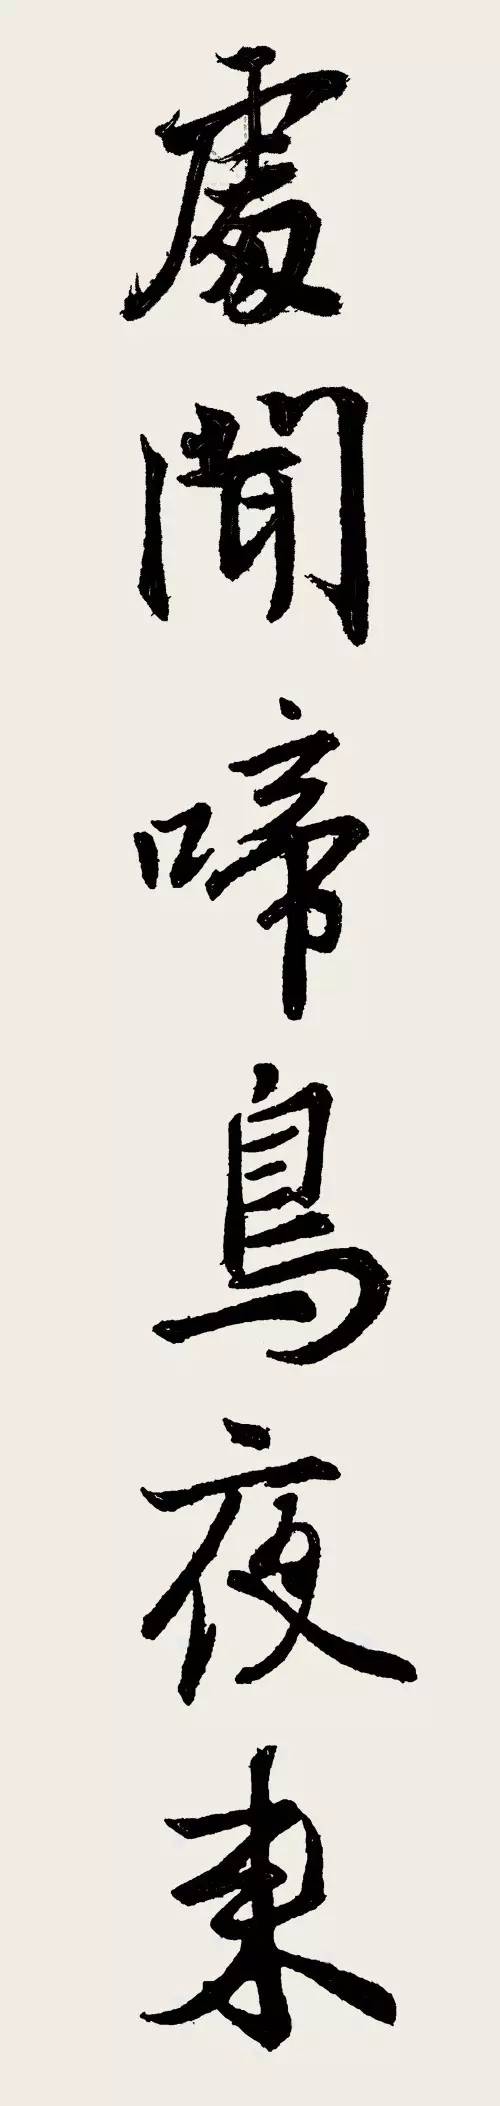 處聞啼鳥夜来